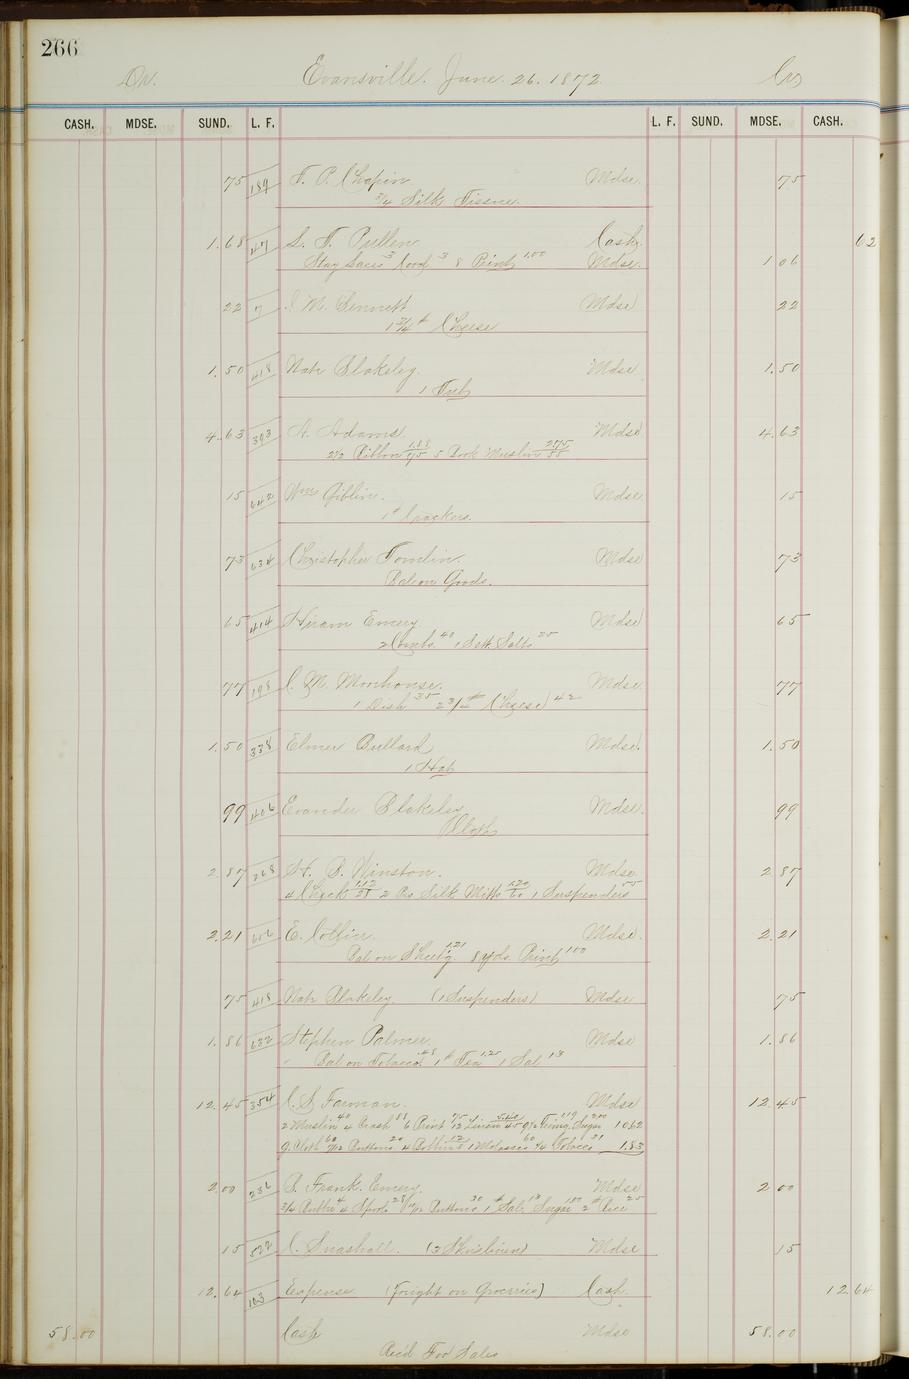 266
Dr. Evansville. June. 26. 1872. Cr.
CASH. MDSE. SUND. L. F. L. F. SUND. MDSE. CASH.
75 189 F. P. Chapin. Mdse. 75
3/4 Silk Tissue.
1.68 47 S. T. Pullen Cash. 62
3 3 8 Print 1.00 Mdse. 1 06
22 7 M. Bennett Mdse 22
1 3/4 # Cheese
1.50 418 Nate Blakeley. Mdse 1.50
1 Tub
4.63 393 A. Adams Mdse 4.63
2 1/2 Ribbon 1.88 75 5 Book Muslin 2.75 55
15 642 Wm Giblin. Mdse 15
1 # Crackers.
73 634 Christopher Tomlin. Mdse 73
Bal on Goods.
65 414 Hiram Emery. Mdse 65
2 Combs. 40 1 Sett Salts 25
77 198 C. M. Morehouse. Mdse. 77
1 Dish 35 2 3/4 # Cheese 42
1.50 338 Elmer Bullard Mdse. 1.50
1 Hat
99 406 Evander Blakeley Mdse. 99
Cloth
2.87 268 H. B. Winston. Mdse. 2.87
4 Check 1.12 28 2 Prs Silk Mitts 1.20 60 1 Suspenders 55
2.21 606 E. Coffin. Mdse. 2.21
Bal on Sheetg 1.21 8 yds. Print 1.00
75 418 Nate Blakeley. (1 Suspenders) Mdse 75
1.86 632 Stephen Palmer. Mdse 1.86
Bal on Tobacco 48 1 # Tea 1.25 1 Sal 13
12.45 354 C. S. Forman. Mdse 12.45
2 Muslin 40 4 Crash 88 6 Print 75 12 Linen 5.40 45 Sugar 2.00 10.62
9. Cloth 60 Buttons 20 4 Bobbins 12 1 Molasses 60 1/4 Tobacco 21 1.83
2.00 236 B. Frank. Emery. Mdse 2 00
3/4 4 Spools 28 Buttons 30 1 # Sal 13 Sugar 1.00 2 # Rice 25
15 522 C. Snashall. Mdse 15
12.64 103 Expense (Freight on Groceries) Cash. 12 64
58.00 Cash Mdse 58.00
Rec'd For Sales